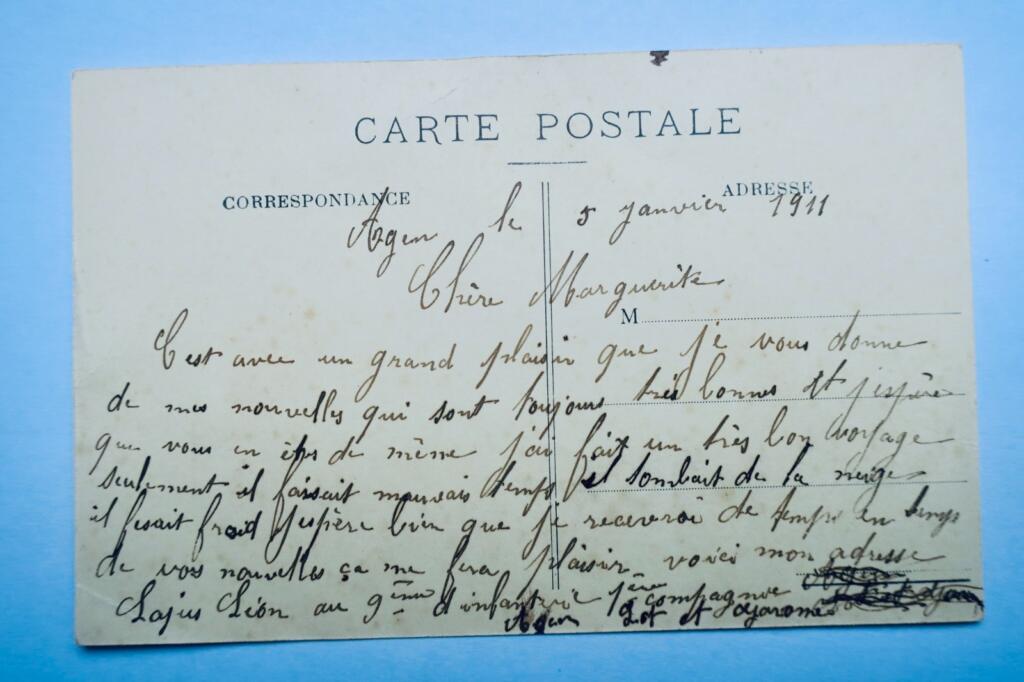 CARTE POSTALE
CORRESPONDANCE
ADRESSE
Agen le 5 janvier 1911
Chère Marguerite
M
C'est avec un grand plaisir que je vous donne
de mes nouvelles qui sont toujours très bonnes et j'espère
que vous en êtes de même j'ai fait un très bon voyage
seulement il faisait mauvais temps il tombait de la neige
il fesait froid j'espère bien que je receverai de temps en temps
de vos nouvelles ça me fera plaisir voici mon adresse
Lajus Léon au 9ème d'infanterie 1ère compagnie
Agen Lot et Garonne